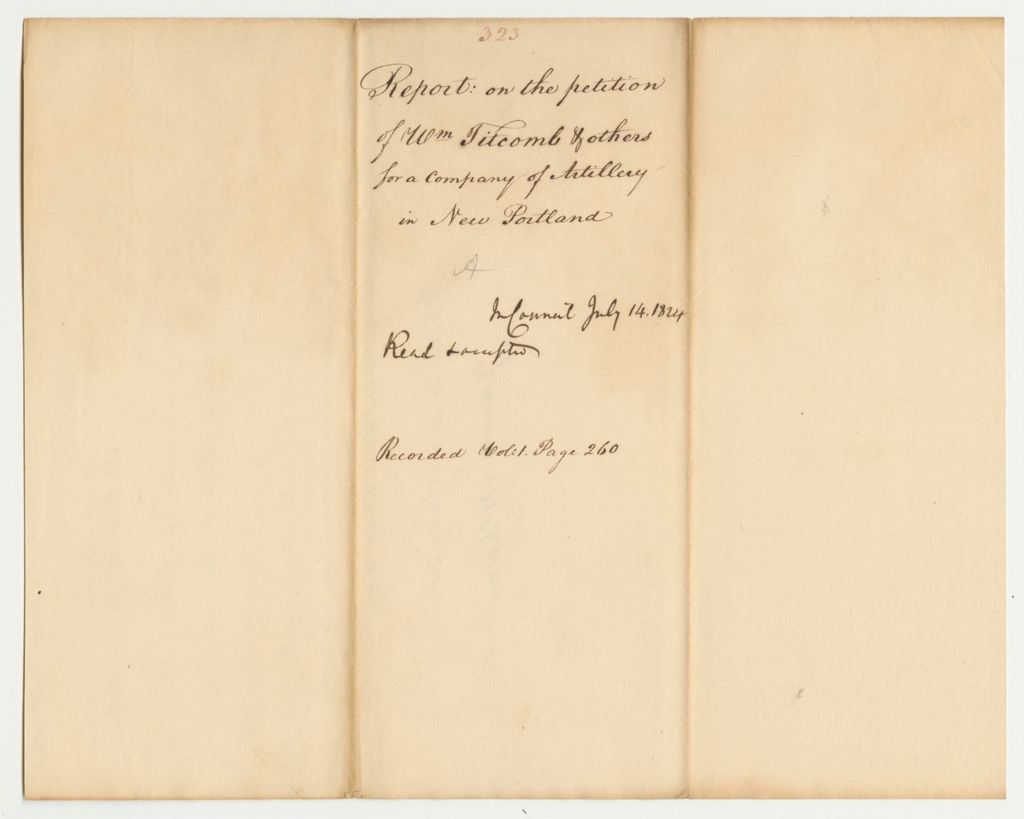 323
Report: on the petition
of Wm Titcomb & others
for a Company of Artillery
in New Portland
A
In Council July 14. 1824
Read & accepted
Recorded Vol: 1. Page 260